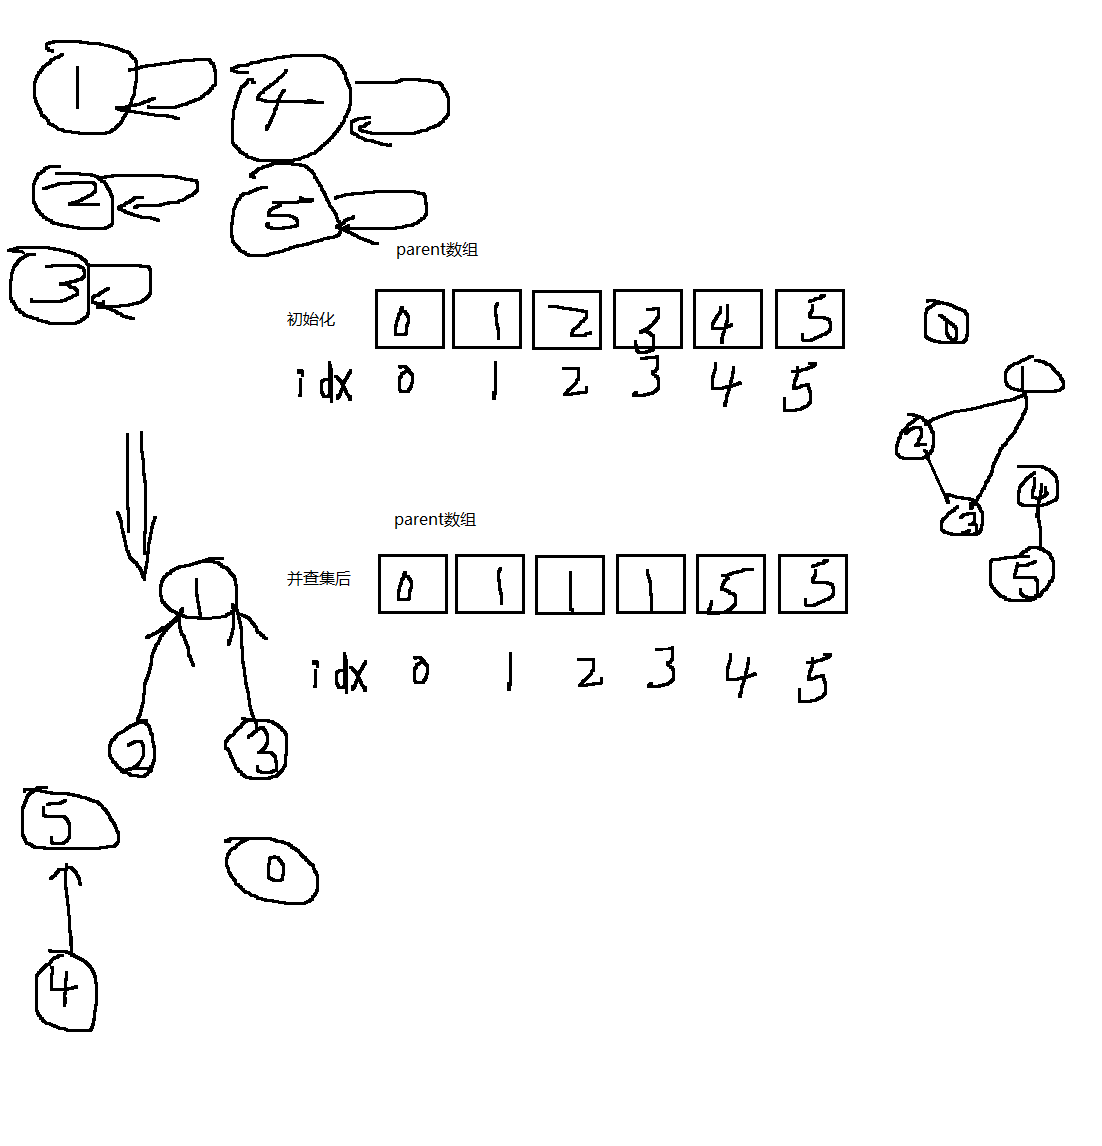 1 4
2 5
3
parent数组
初始化 0 1 2 3 4 5
idx 0 1 2 3 4 5
0
1
2
3
4
5
parent数组
并查集后 0 1 1 1 5 5
idx 0 1 2 3 4 5
1
2 3
5
0
4